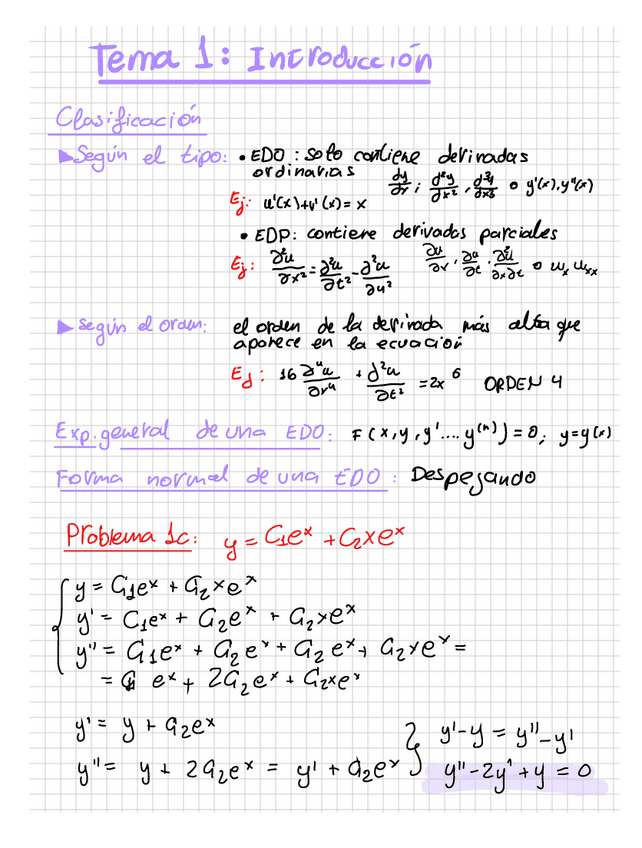 Tema 1: Introducción
Clasificación
▶Según el tipo: • EDO : solo contiene derivadas
ordinarias dy/dx ; d²y/dx², d³y/dx³ o y'(x), y''(x)
Ej: u'(x)+v'(x) = x
• EDP: contiene derivadas parciales
Ej: ∂²u/∂x² = ∂²u/∂t² - ∂²u/∂y² ∂u/∂x, ∂u/∂t, ∂²u/∂x∂t o uₓ uₓₓ
▶ Según el orden: el orden de la derivada más alta que
aparece en la ecuación
Ej : 16 ∂⁴u/∂r⁴ + ∂²u/∂t² = 2x⁶ ORDEN 4
Exp. general de una EDO: F(x, y, y'.... y⁽ⁿ⁾) = 0; y=y(x)
Forma normal de una EDO : Despejando
Problema 1c: y = C₁eˣ + C₂xeˣ
y = C₁eˣ + C₂xeˣ
y' = C₁eˣ + C₂eˣ + C₂xeˣ
y'' = C₁eˣ + C₂eˣ + C₂eˣ + C₂xeˣ =
= C₁ eˣ + 2C₂eˣ + C₂xeˣ
y' = y + C₂eˣ
y'' = y + 2C₂eˣ = y' + C₂eˣ
y'-y = y''-y'
y''-2y'+y = 0